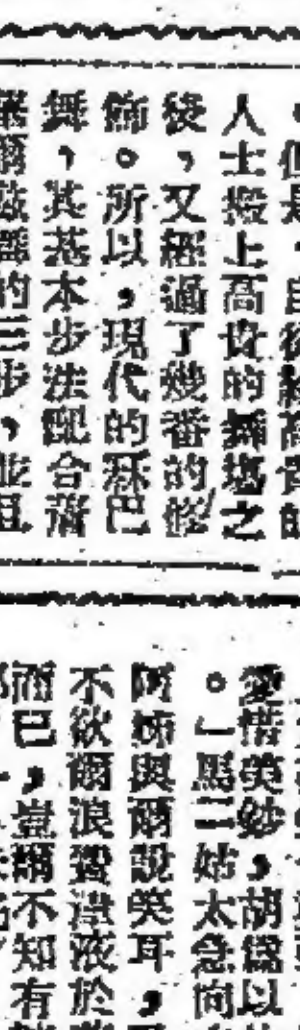 但是，自從經高貴的
人士搬上高貴的舞塲之
後，又經過了幾番的修
飾。所以，現代的森巴
舞，其基本步法配合着
的三步，並且
愛情美妙，胡爲以
。」馬二姑太急向
阿姊與爾説笑耳，
不欲爾浪費津液於
而已，豈爾不知有